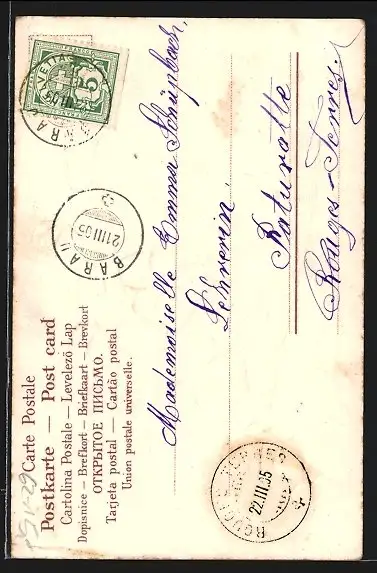 Carte Postale
Postkarte — Post card
Cartolina Postale — Levelezö Lap
Dopisnice — Brefkort — Briefkaart — Brevkort
ОТКРЫТОЕ ПИСЬМО.
Tarjeta postal — Cartão postal
Union postale universelle.
HELVETIA
5
FRANCO
BARAU
BARAU
21 III 05
Mademoiselle Emma Schüpbach,
Lehrerin,
Paturatte
Rouges-Terres.
22.III.05